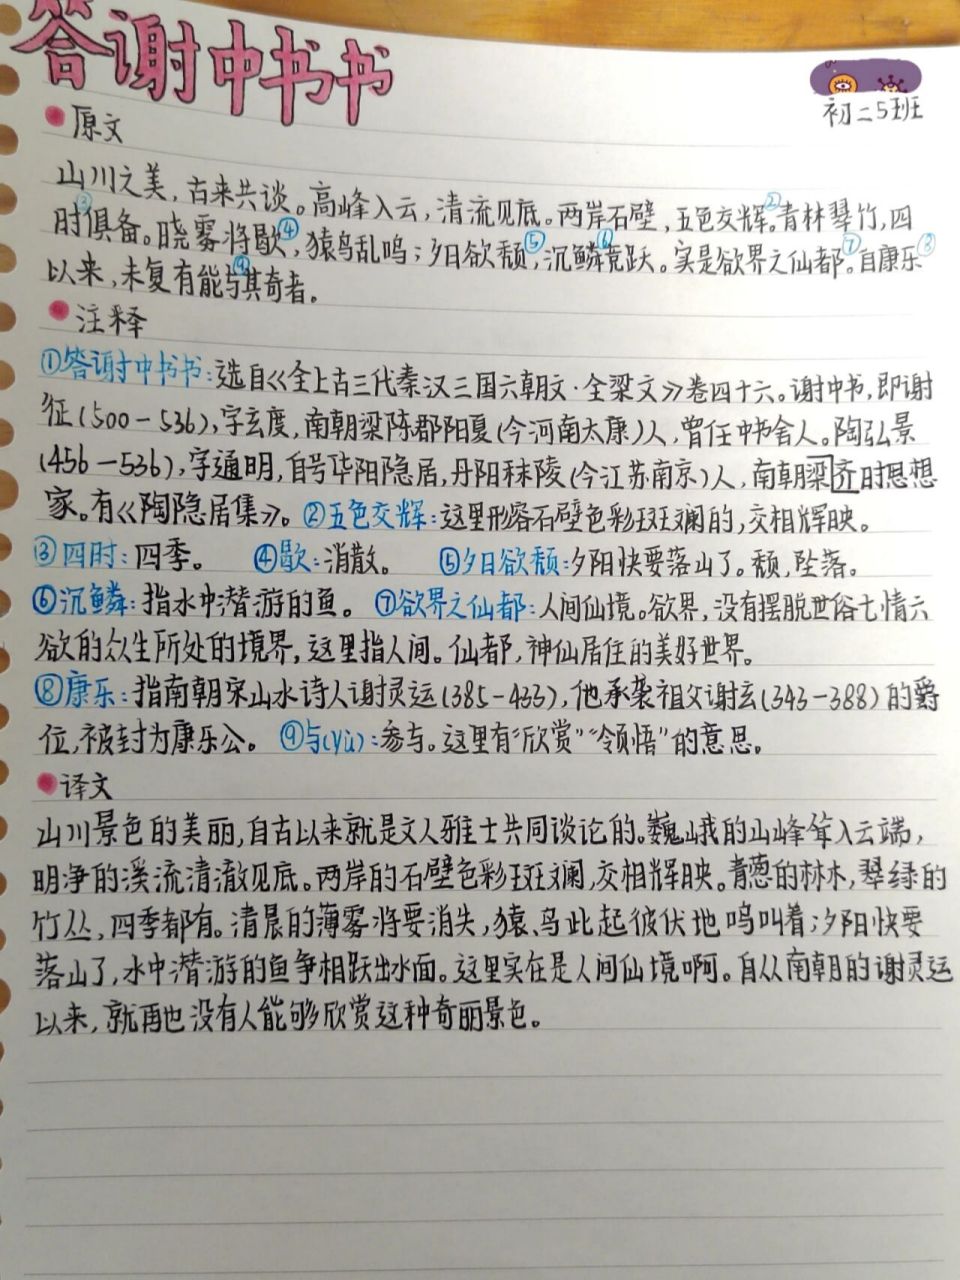 答谢中书书
初二5班
原文
山川之美，古来共谈。高峰入云，清流见底。两岸石壁，五色交辉②。青林翠竹，四
时③俱备。晓雾将歇④，猿鸟乱鸣；夕日欲颓⑤，沉鳞⑥竞跃。实是欲界之仙都⑦。自康乐⑧
以来，未复有能与⑨其奇者。
注释
①答谢中书书：选自《全上古三代秦汉三国六朝文·全梁文》卷四十六。谢中书，即谢
征(500－536)，字玄度，南朝梁陈郡阳夏(今河南太康)人，曾任中书舍人。陶弘景
(456－536)，字通明，自号华阳隐居，丹阳秣陵(今江苏南京)人，南朝梁齐时思想
家。有《陶隐居集》。②五色交辉：这里形容石壁色彩斑斓的，交相辉映。
③四时：四季。 ④歇：消散。 ⑤夕日欲颓：夕阳快要落山了。颓，坠落。
⑥沉鳞：指水中潜游的鱼。 ⑦欲界之仙都：人间仙境。欲界，没有摆脱世俗七情六
欲的众生所处的境界，这里指人间。仙都，神仙居住的美好世界。
⑧康乐：指南朝宋山水诗人谢灵运(385－433)，他承袭祖父谢玄(343－388)的爵
位，被封为康乐公。 ⑨与(yù)：参与。这里有“欣赏”“领悟”的意思。
译文
山川景色的美丽，自古以来就是文人雅士共同谈论的。巍峨的山峰耸入云端，
明净的溪流清澈见底。两岸的石壁色彩斑斓，交相辉映。青葱的林木，翠绿的
竹丛，四季都有。清晨的薄雾将要消失，猿、鸟此起彼伏地鸣叫着；夕阳快要
落山了，水中潜游的鱼争相跃出水面。这里实在是人间仙境啊。自从南朝的谢灵运
以来，就再也没有人能够欣赏这种奇丽景色。